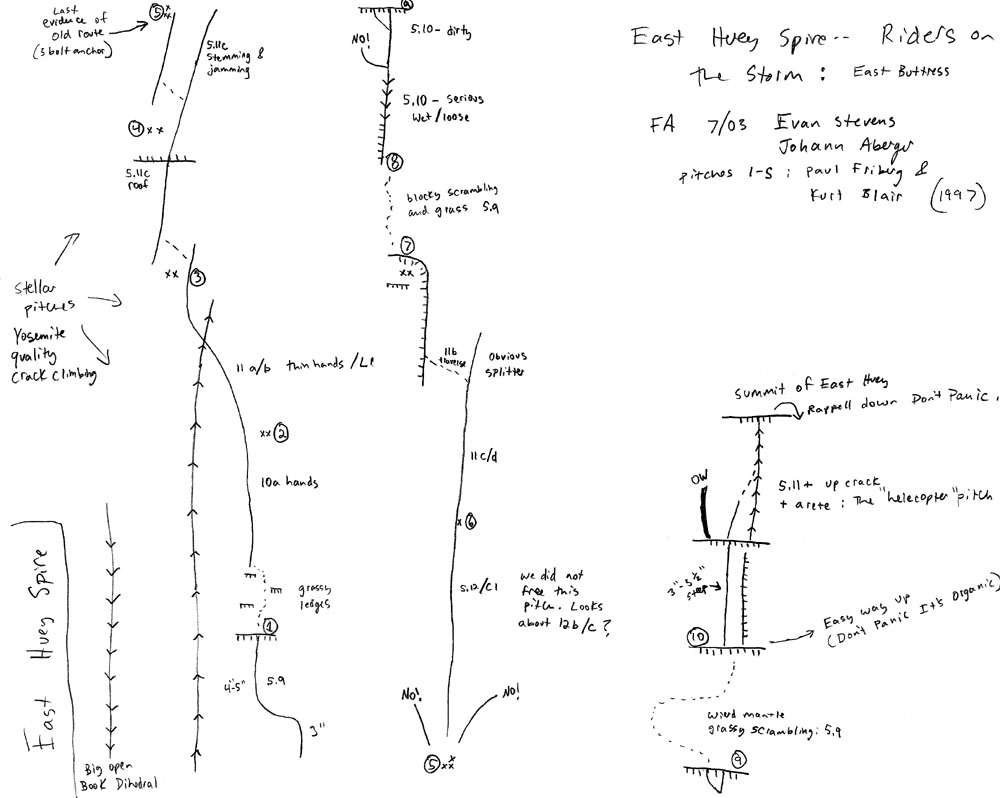 East Huey Spire-- Riders on
the Storm: East Buttress
FA 7/03 Evan Stevens
Johann Aberger
pitches 1-5: Paul Friberg &
Kurt Blair (1997)
Last
evidence of
old route
(3 bolt anchor)
5 x
xx
5.11c
stemming &
jamming
4 xx
5.11c
roof
xx 3
Stellar
pitches
Yosemite
quality
crack climbing
11 a/b thin hands/LL
xx 2
10a hands
grassy
ledges
1
4"-5" 5.9
3"
East Huey Spire
Big open
Book Dihedral
9
NO!
5.10- dirty
5.10- serious
wet/loose
8
blocky scrambling
and grass 5.9
7
xx
11b
traverse
Obvious
splitter
11c/d
x 6
5.12/C1
we did not
free this
pitch. Looks
about 12b/c?
NO!
NO!
5 x
xx
summit of East Huey
Rappell down Don't Panic.
OW
5.11+ up crack
+ arete: The "helecopter" pitch
3"-3½"
steep
10
Easy way up
(Don't Panic It's Organic)
wierd mantle
grassy scrambling: 5.9
9